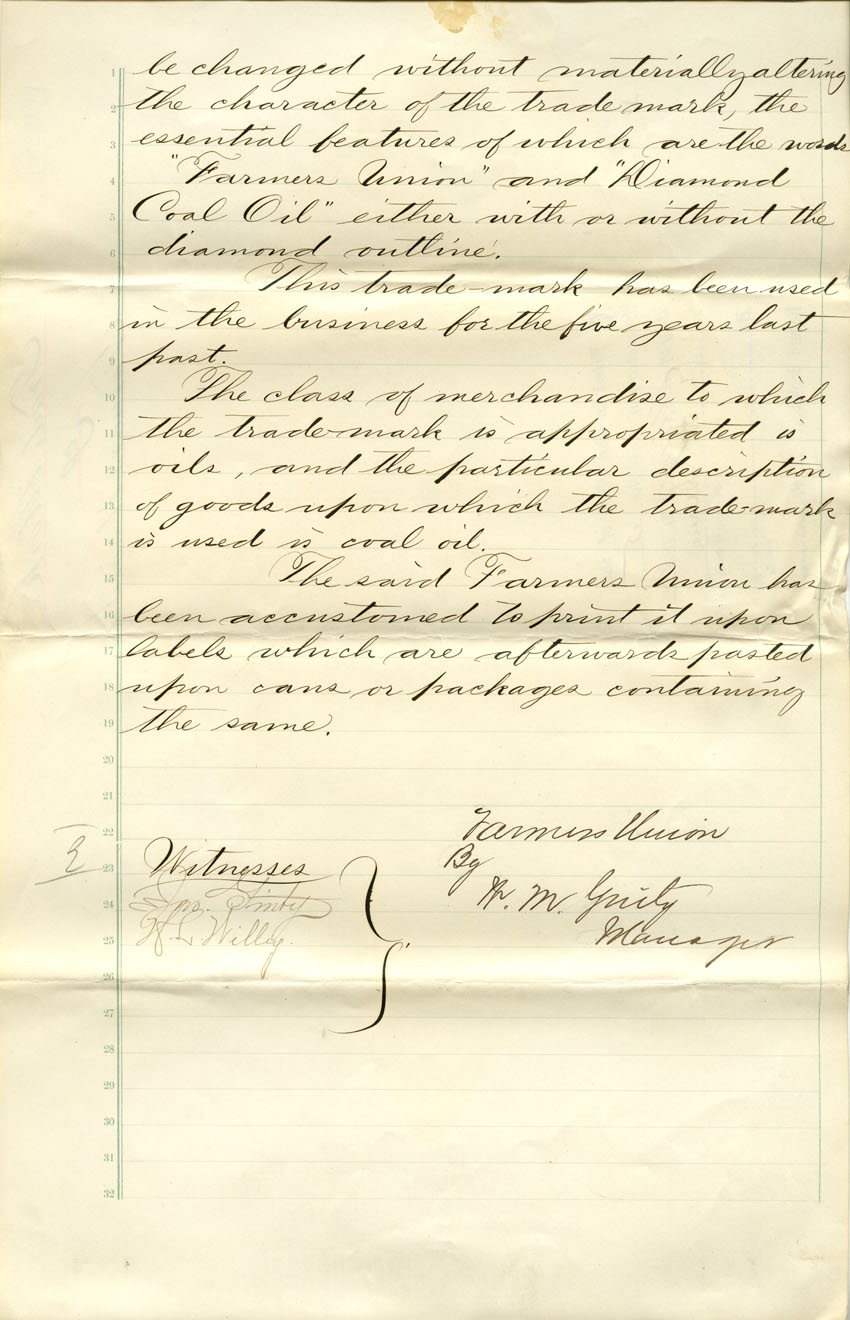 1 be changed without materially altering
2 the character of the trade mark, the
3 essential features of which are the words
4 "Farmers Union" and "Diamond
5 Coal Oil" either with or without the
6 diamond outline.
7 This trade-mark has been used
8 in the business for the five years last
9 past.
10 The class of merchandise to which
11 the trade-mark is appropriated is
12 oils, and the particular description
13 of goods upon which the trade-mark
14 is used is coal oil.
15 The said Farmers Union has
16 been accustomed to print it upon
17 labels which are afterwards pasted
18 upon cans or packages containing
19 the same.
20
21
22 Farmers Union
23 Witnesses By
24 W. M.
25 W. L. Willey. Manager
26
27
28
29
30
31
32